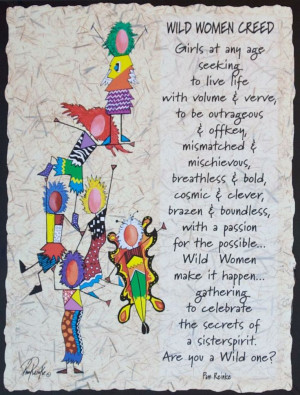 WILD WOMEN CREED
Girls at any age
seeking
to live life
with volume & verve,
to be outrageous
& offkey,
mismatched &
mischievous,
breathless & bold,
cosmic & clever,
brazen & boundless,
with a passion
for the possible...
Wild Women
make it happen...
gathering
to celebrate
the secrets of
a sisterspirit.
Are you a Wild one?
Pam Reinke